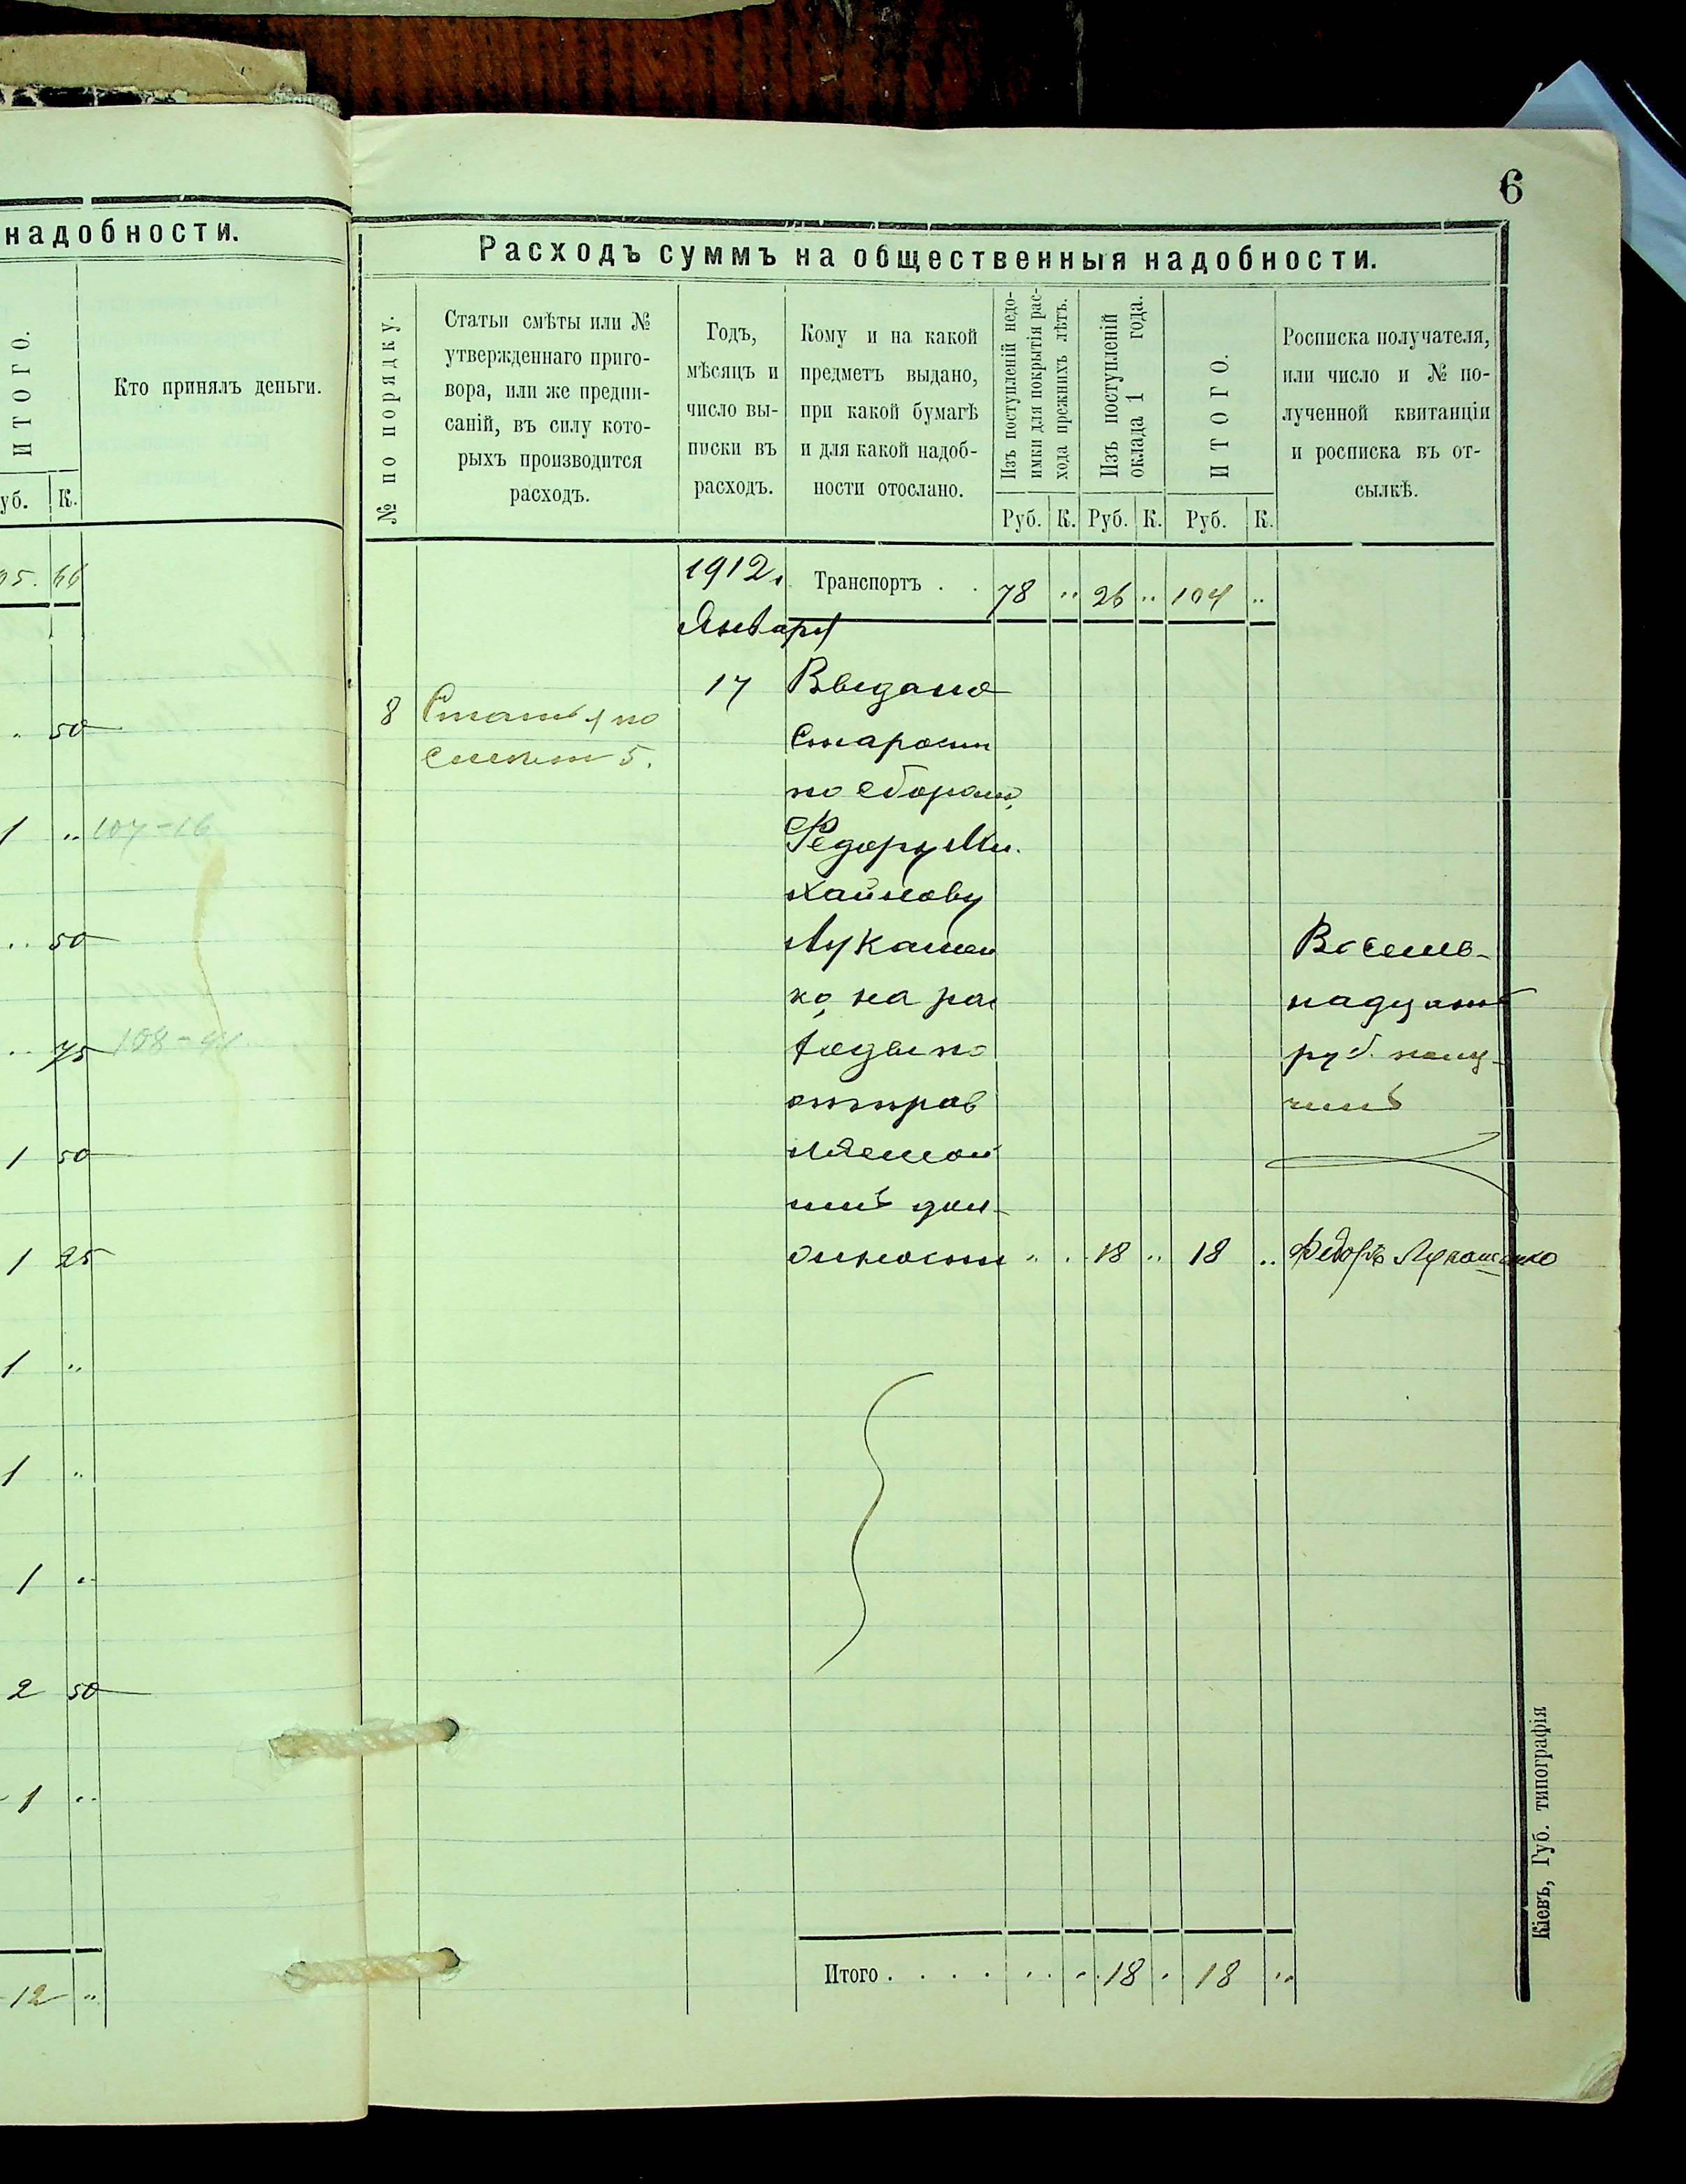 надобности.
ИТОГО.
Кто принялъ деньги.
уб. К.
05. 66
50
1 „ 107-16
„ 50
„ 75
1 50
1 25
1 „
1 „
1 „
2 50
1 „
12 „
6
Расходъ суммъ на общественныя надобности.
№ по порядку.
Статьи смѣты или №
утвержденнаго приго-
вора, или же предпи-
саній, въ силу кото-
рыхъ производится
расходъ.
Годъ,
мѣсяцъ и
число вы-
писки въ
расходъ.
Кому и на какой
предметъ выдано,
при какой бумагѣ
и для какой надоб-
ности отослано.
Изъ поступленій недо-
имки для покрытія рас-
хода прежнихъ лѣтъ.
Изъ поступленій
оклада 1 года.
ИТОГО.
Росписка получателя,
или число и № по-
лученной квитанціи
и росписка въ от-
сылкѣ.
Руб. К. Руб. К. Руб. К.
1912 г. Транспортъ . . 78 „ 26 „ 104 „
Января
17 Выдано
8 Статья 1 по
смѣтѣ 5.
Старостѣ
по сборамъ
Федору Ми-
хайлову
Лукашен
ко, на рас
ходы по
отправ
ляемой
имъ дол-
жности „ „ 18 „ 18 „
Восемь-
надцать
руб. полу-
чилъ
Федоръ Лукашенко
Итого . . . . „ „ 18 „ 18 „
Кіевъ, Губ. типографія